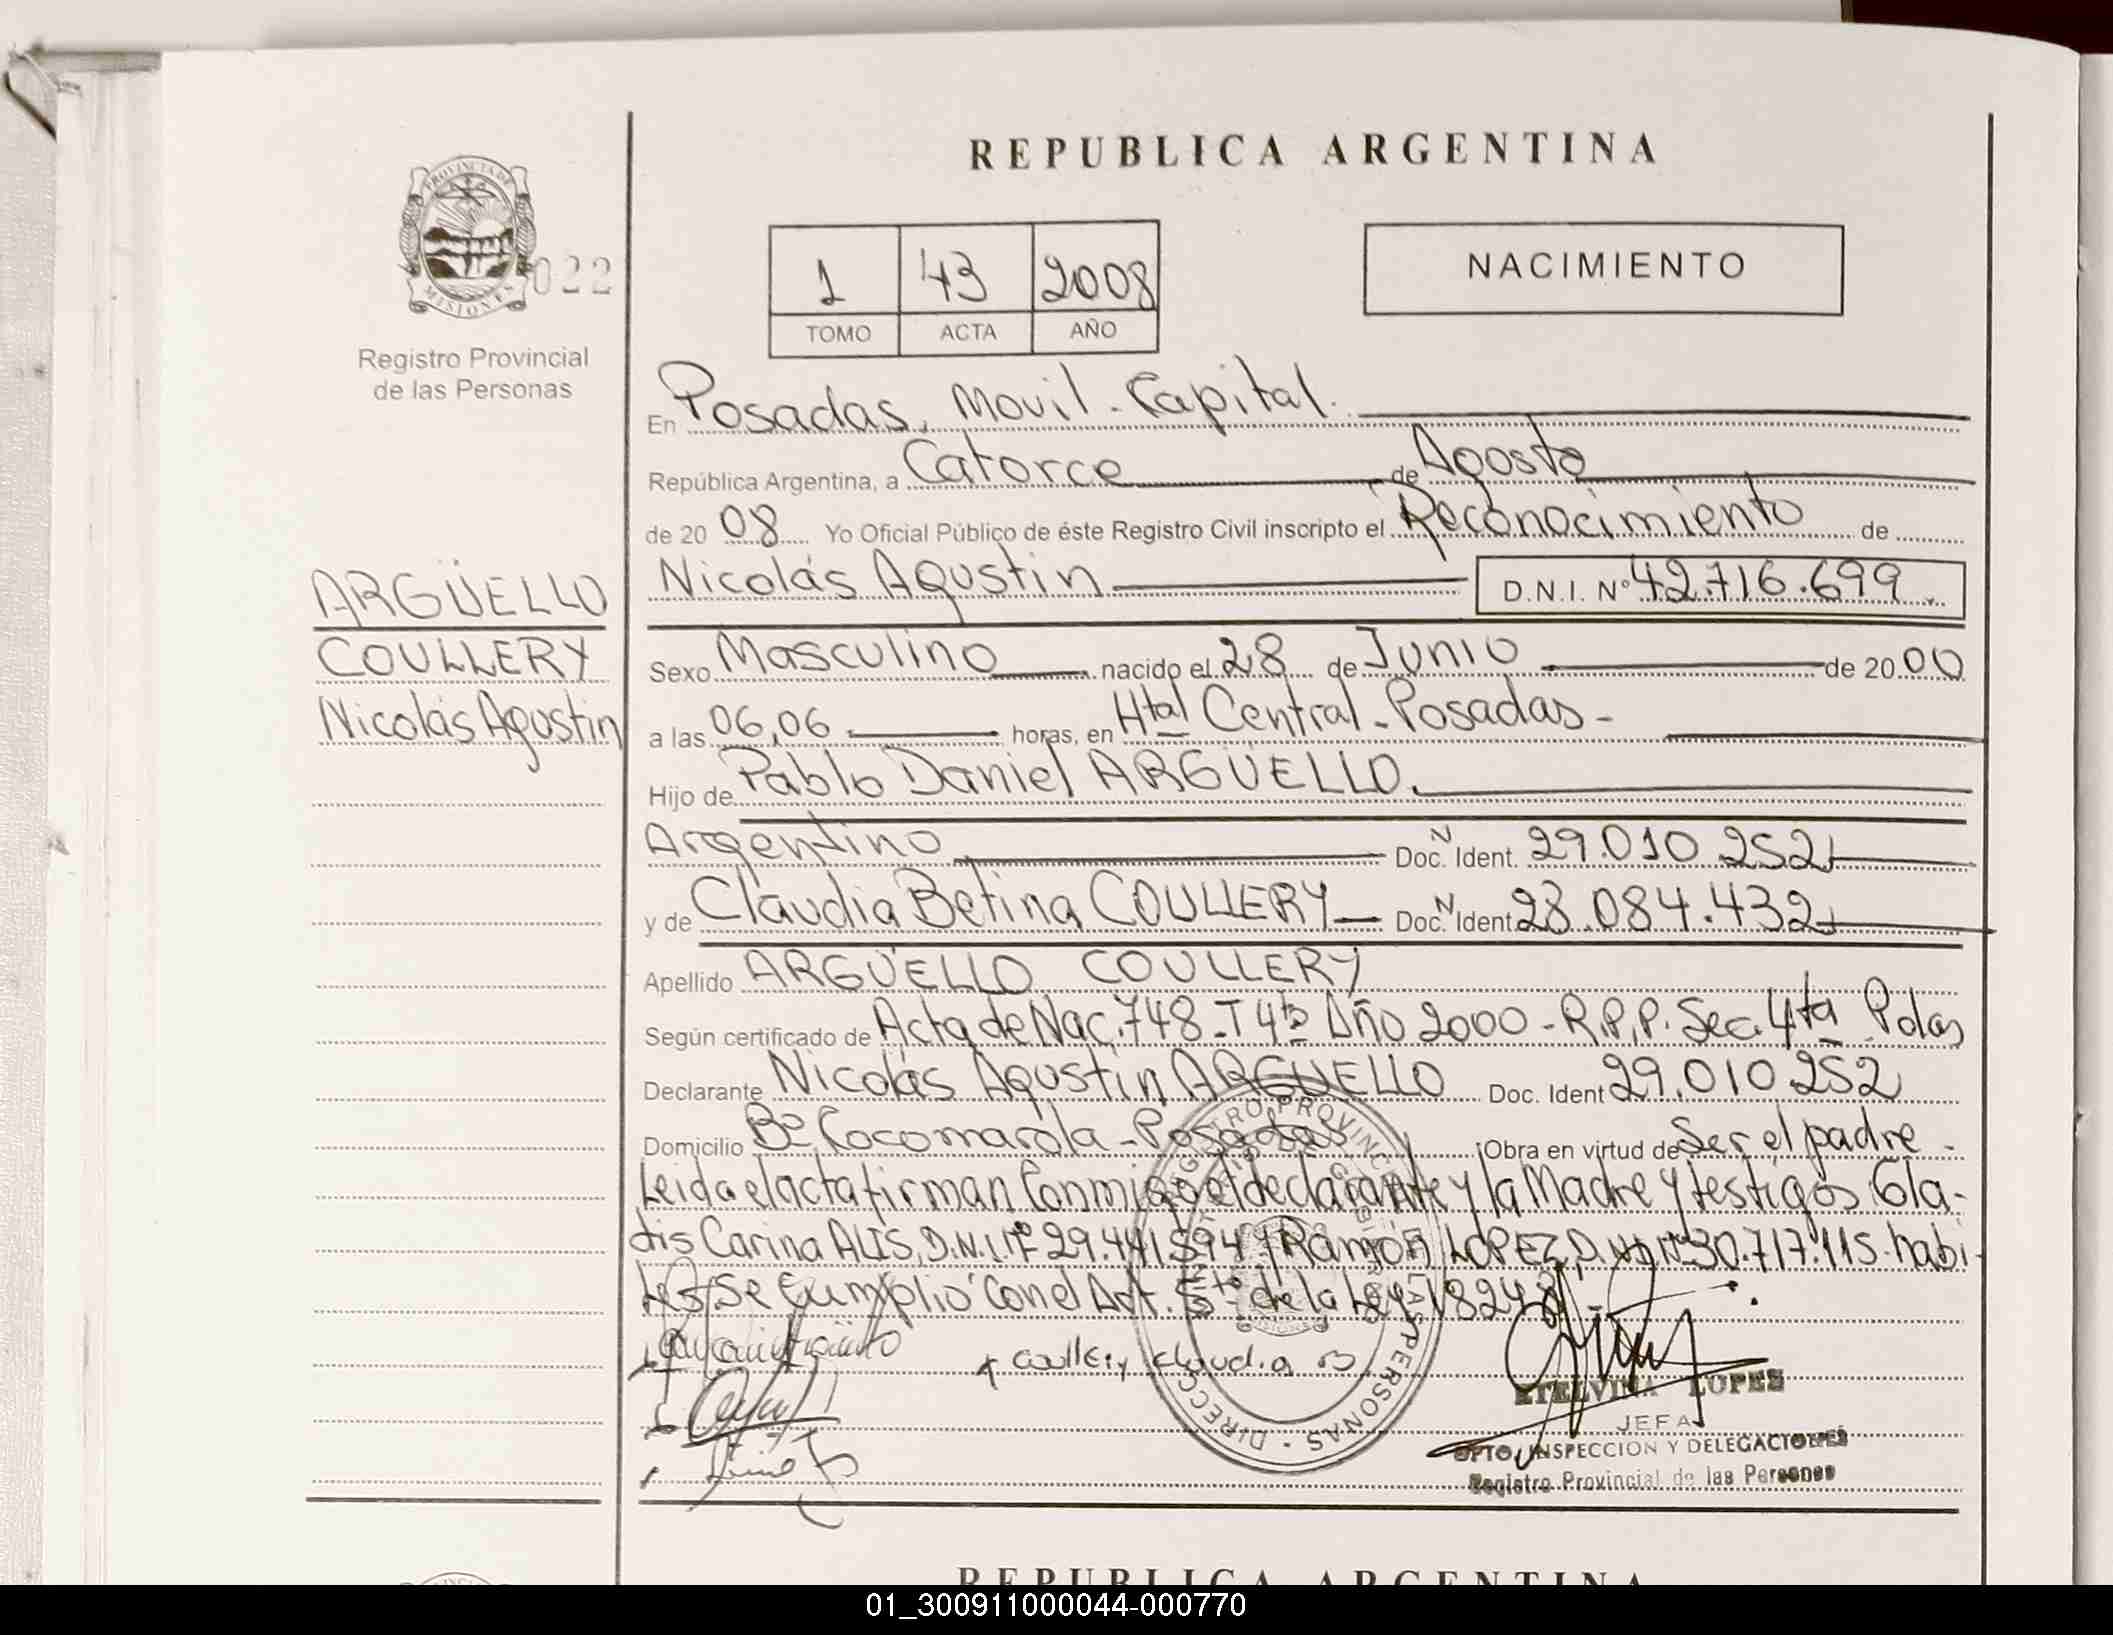 REPUBLICA ARGENTINA
PROVINCIA DE
MISIONES
022
Registro Provincial
de las Personas
1 43 2008
TOMO ACTA AÑO
NACIMIENTO
En Posadas, Movil - Capital.
República Argentina, a Catorce de Agosto
de 2008 Yo Oficial Público de éste Registro Civil inscripto el Reconocimiento de
Nicolás Agustin D.N.I. Nº 42.716.699
ARGÜELLO
COULLERY
Nicolás Agustin
Sexo Masculino nacido el 28 de Junio de 2000
a las 06,06 horas, en Htal Central - Posadas -
Hijo de Pablo Daniel ARGÜELLO.
Argentino Doc. N Ident. 29.010.252
y de Claudia Betina COULLERY Doc. N Ident 28.084.432
Apellido ARGÜELLO COULLERY
Según certificado de Acta de Nac. 748 - T 4to Año 2000 - R.P.P. Sec. 4ta Pdas
Declarante Nicolás Agustin ARGUELLO Doc. Ident 29.010.252
Domicilio Bº Cocomarola - Posadas Obra en virtud de Ser el padre -
Leida el acta firman Conmigo el declarante y la Madre y testigos Gla-
dis Carina ALIS, D.N.I. Nº 29.441.594 y Ramón LOPEZ, D.N.I. Nº 30.717.115 - habi-
les - Se Cumplio Con el Art. 5to de la Ley 18248
x Coullery Claudia B
ETELVINA LOPES
JEFA
DPTO. INSPECCION Y DELEGACIONES
Registro Provincial de las Personas
REGISTRO PROVINCIAL DE LAS PERSONAS - DIRECC
REPUBLICA ARGENTINA
01_300911000044-000770